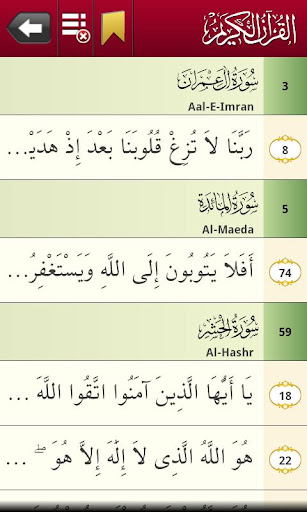 القرآن الكريم
سورة آل عمران
3
Aal-E-Imran
رَبَّنَا لَا تُزِغْ قُلُوبَنَا بَعْدَ إِذْ هَدَيْ...
8
سورة المائدة
5
Al-Maeda
أَفَلَا يَتُوبُونَ إِلَى اللَّهِ وَيَسْتَغْفِرُ...
74
سورة الحشر
59
Al-Hashr
يَا أَيُّهَا الَّذِينَ آمَنُوا اتَّقُوا اللَّهَ ...
18
هُوَ اللَّهُ الَّذِي لَا إِلَٰهَ إِلَّا هُوَ ۖ ...
22